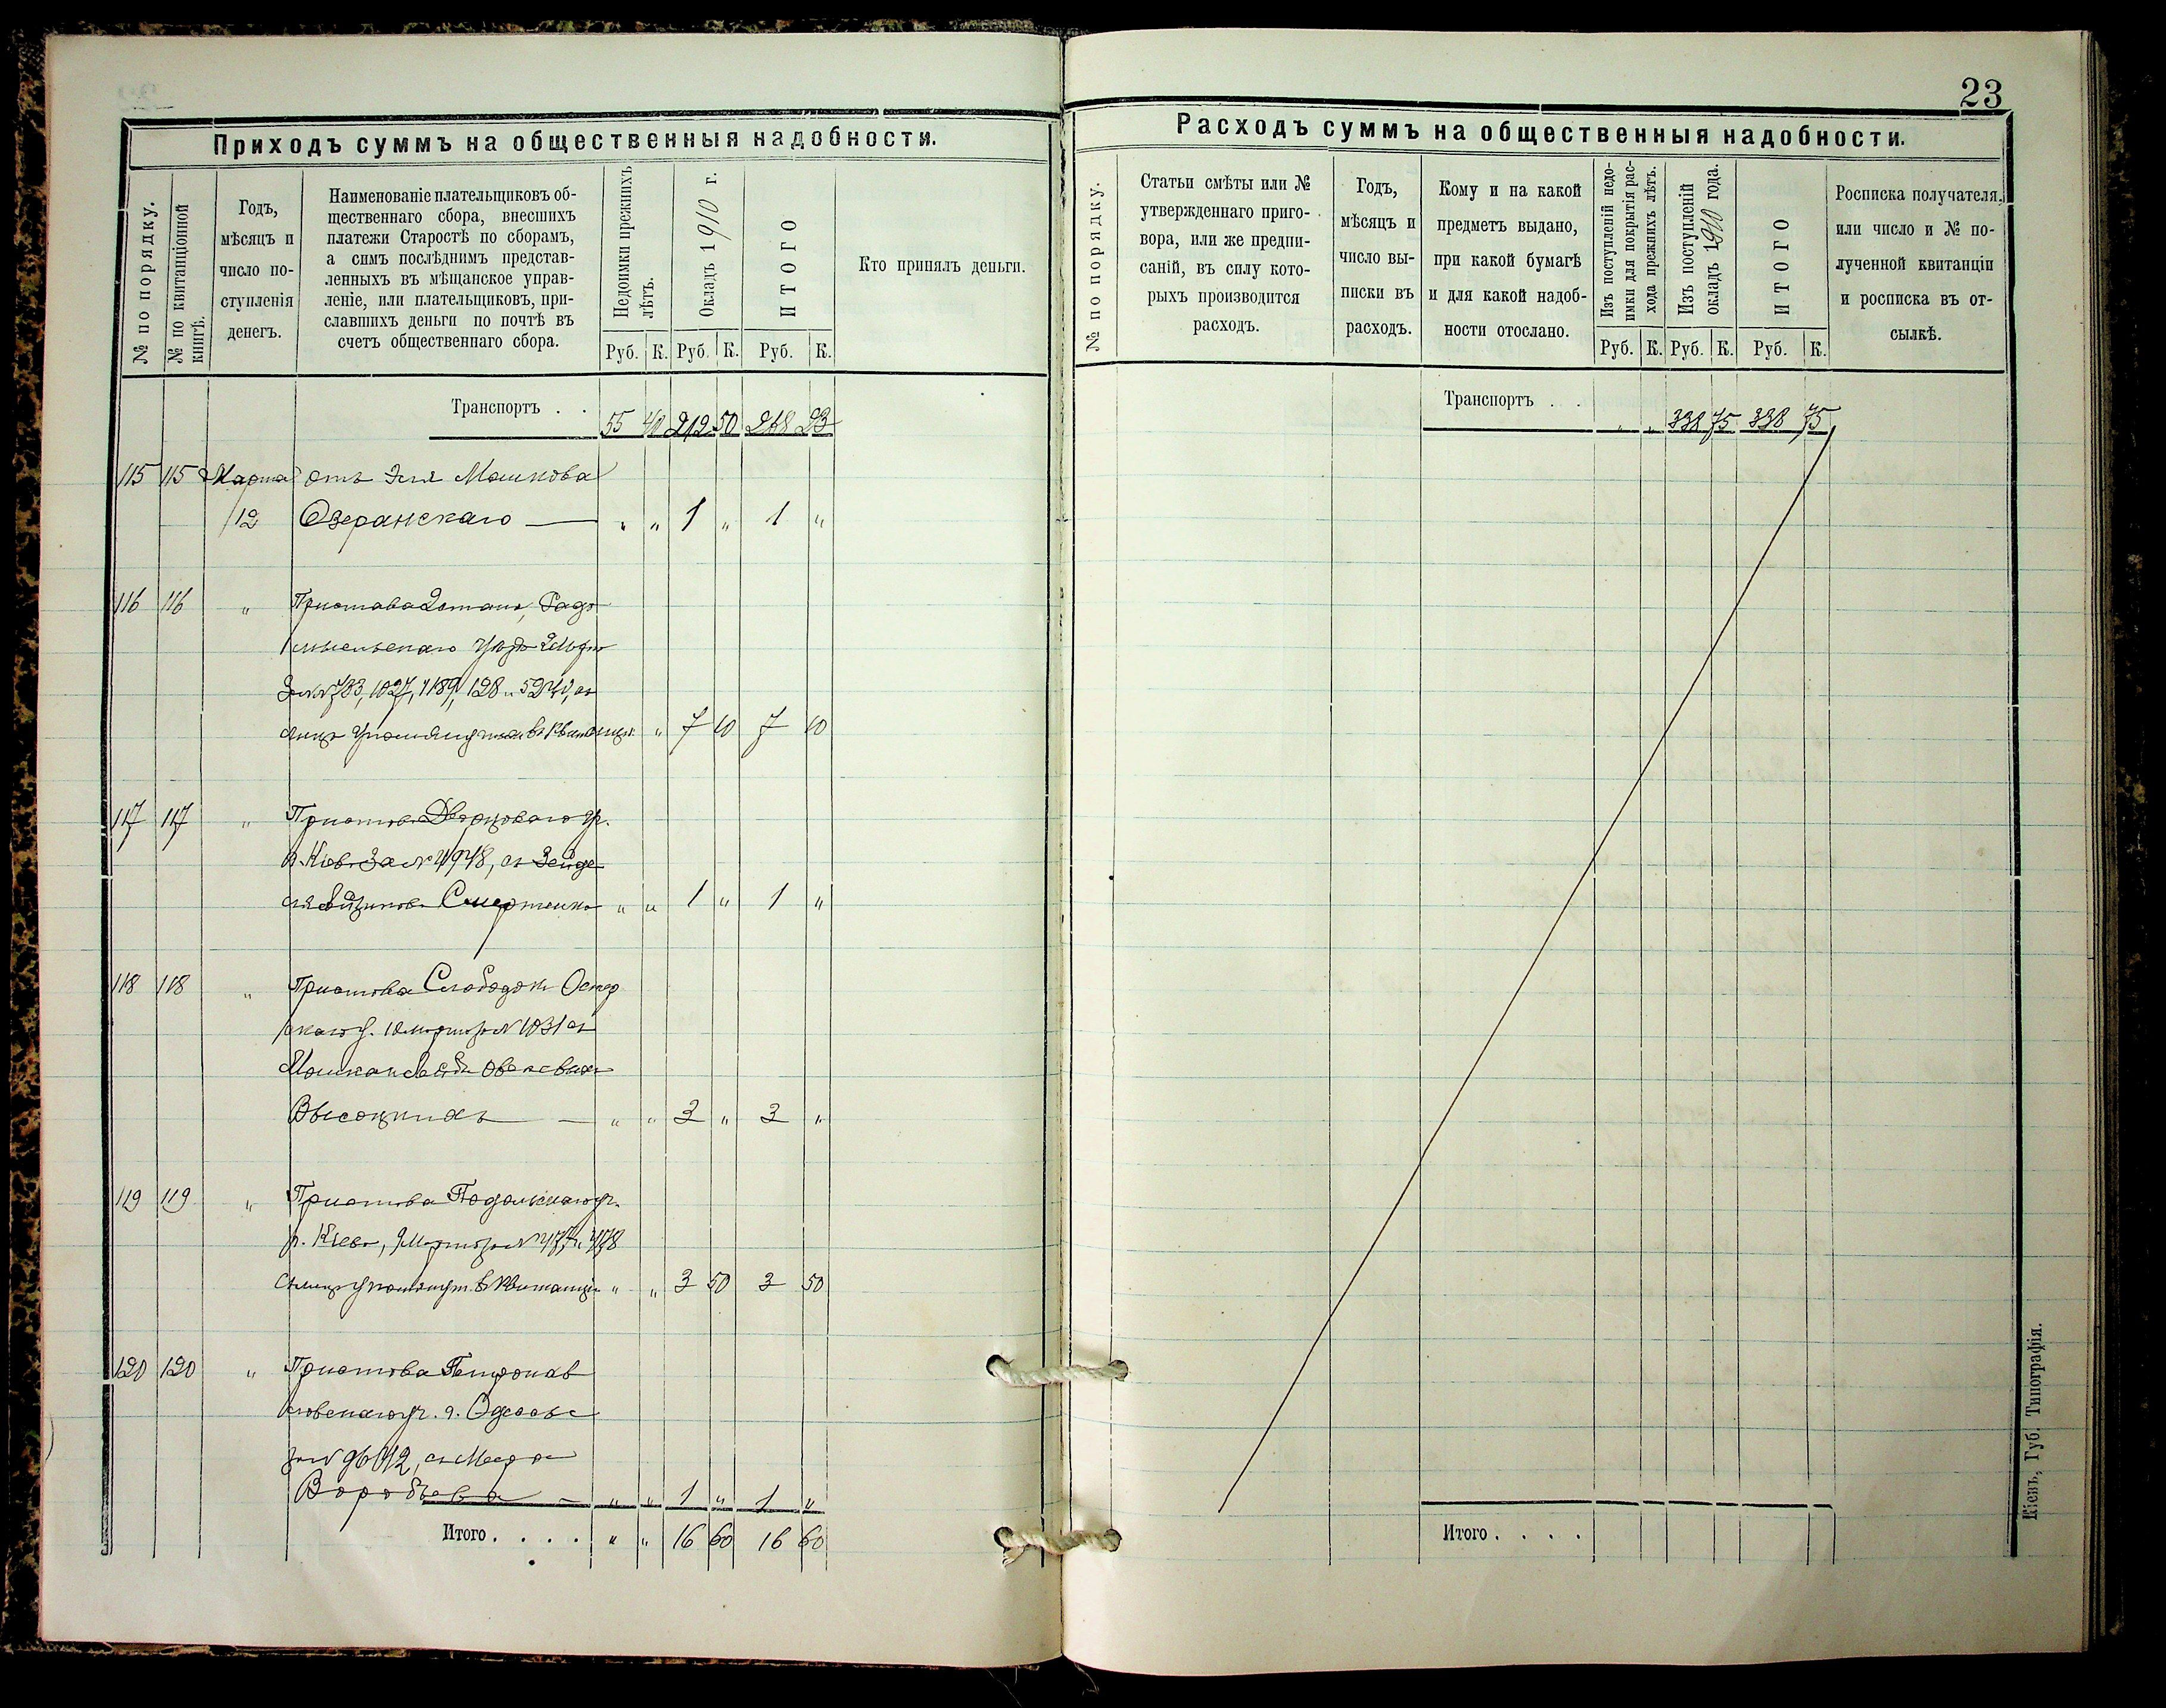 23
Приходъ суммъ на общественныя надобности.
№ по порядку.
№ по квитанціонной книгѣ.
Годъ,
мѣсяцъ и
число по-
ступленія
денегъ.
Наименованіе плательщиковъ об-
щественнаго сбора, внесшихъ
платежи Старостѣ по сборамъ,
а симъ послѣднимъ представ-
ленныхъ въ мѣщанское управ-
леніе, или плательщиковъ, при-
славшихъ деньги по почтѣ въ
счетъ общественнаго сбора.
Недоимки прежнихъ
лѣтъ.
Окладъ 1910 г.
ИТОГО
Кто принялъ деньги.
Руб. К. Руб. К. Руб. К.
Транспортъ . . 55 212 50 23
115 115 Марта отъ Эля Мошкова
12 Озеранскаго — „ „ 1 „ 1 „
116 116 „ Пристава 2 стана, Радо
мысльскаго
733, 1027, 1189, 128 и
лицъ въ квитанціи „ 7 10 7 10
117 117 „ Пристава Дворцоваго уч.
г. Кіева за № 4948, съ Зейде
„ „ 1 „ 1 „
118 118 „ Пристава Слободки Остер
скаго у. 10 марта за № 1031 съ
Мошка и
Высоцкихъ — „ „ 3 „ 3 „
119 119 „ Пристава Подольскаго уч.
г. Кіева, 9 Марта за № 478
съ лицъ упомянут. въ квитанціи „ „ 3 50 3 50
120 120 „ Пристава Петропав
ловскаго уч. г. Одессы
за № 9642, съ Меера
Воробьева — „ „ 1 „ 1 „
Итого. . . . „ „ 16 60 16 60
Расходъ суммъ на общественныя надобности.
№ по порядку.
Статьи смѣты или №
утвержденнаго приго-
вора, или же предпи-
саній, въ силу кото-
рыхъ производится
расходъ.
Годъ,
мѣсяцъ и
число вы-
писки въ
расходъ.
Кому и на какой
предметъ выдано,
при какой бумагѣ
и для какой надоб-
ности отослано.
Изъ поступленій недо-
имки для покрытія рас-
хода прежнихъ лѣтъ.
Изъ поступленій
окладъ 1910 года.
ИТОГО
Росписка получателя,
или число и № по-
лученной квитанціи
и росписка въ от-
сылкѣ.
Руб. К. Руб. К. Руб. К.
Транспортъ . . „ „ 338 75 338 75
Итого . . . .
Кіевъ, Губ. Типографія.